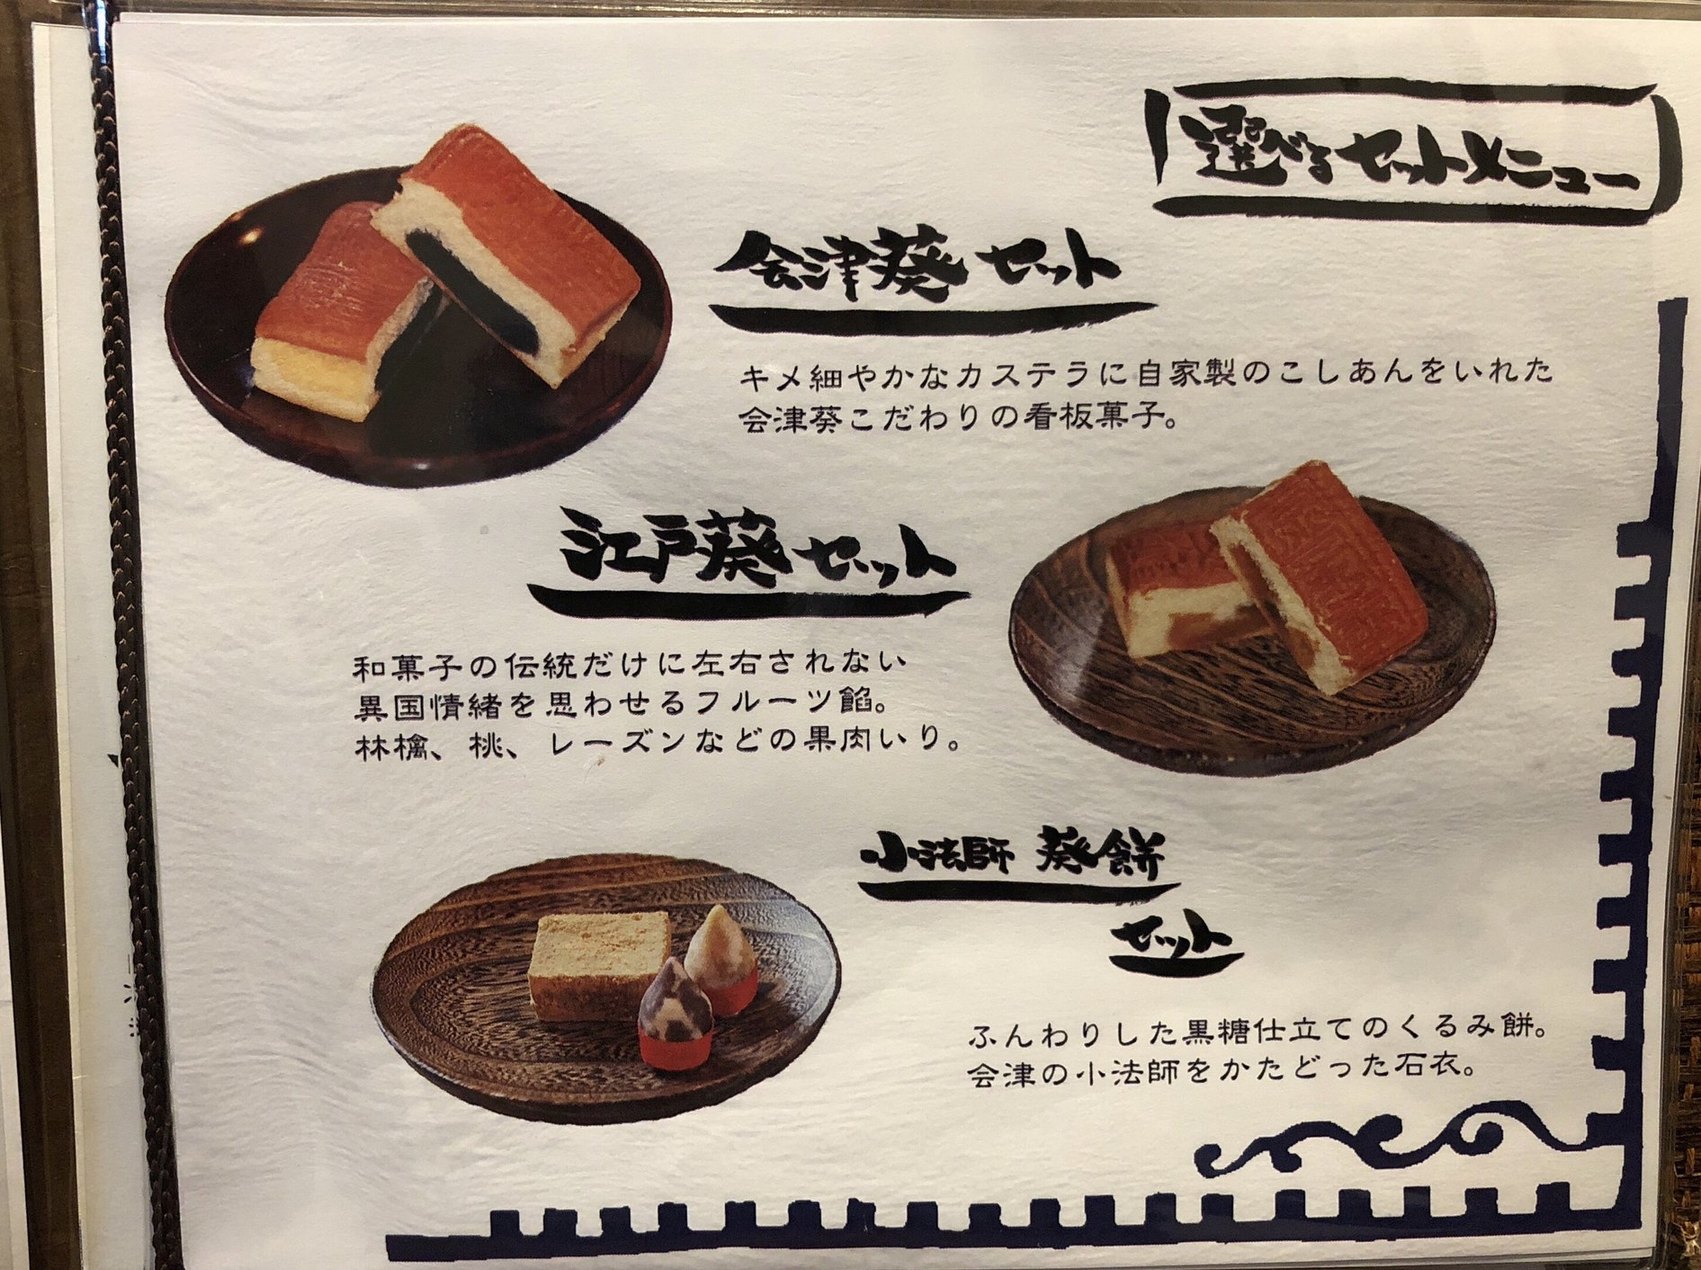 選べるセットメニュー
会津葵セット
キメ細やかなカステラに自家製のこしあんをいれた
会津葵こだわりの看板菓子。
江戸葵セット
和菓子の伝統だけに左右されない
異国情緒を思わせるフルーツ餡。
林檎、桃、レーズンなどの果肉いり。
小法師 葵餅
セット
ふんわりした黒糖仕立てのくるみ餅。
会津の小法師をかたどった石衣。